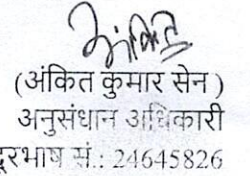 अंकित
(अंकित कुमार सेन )
अनुसंधान अधिकारी
दूरभाष सं.: 24645826